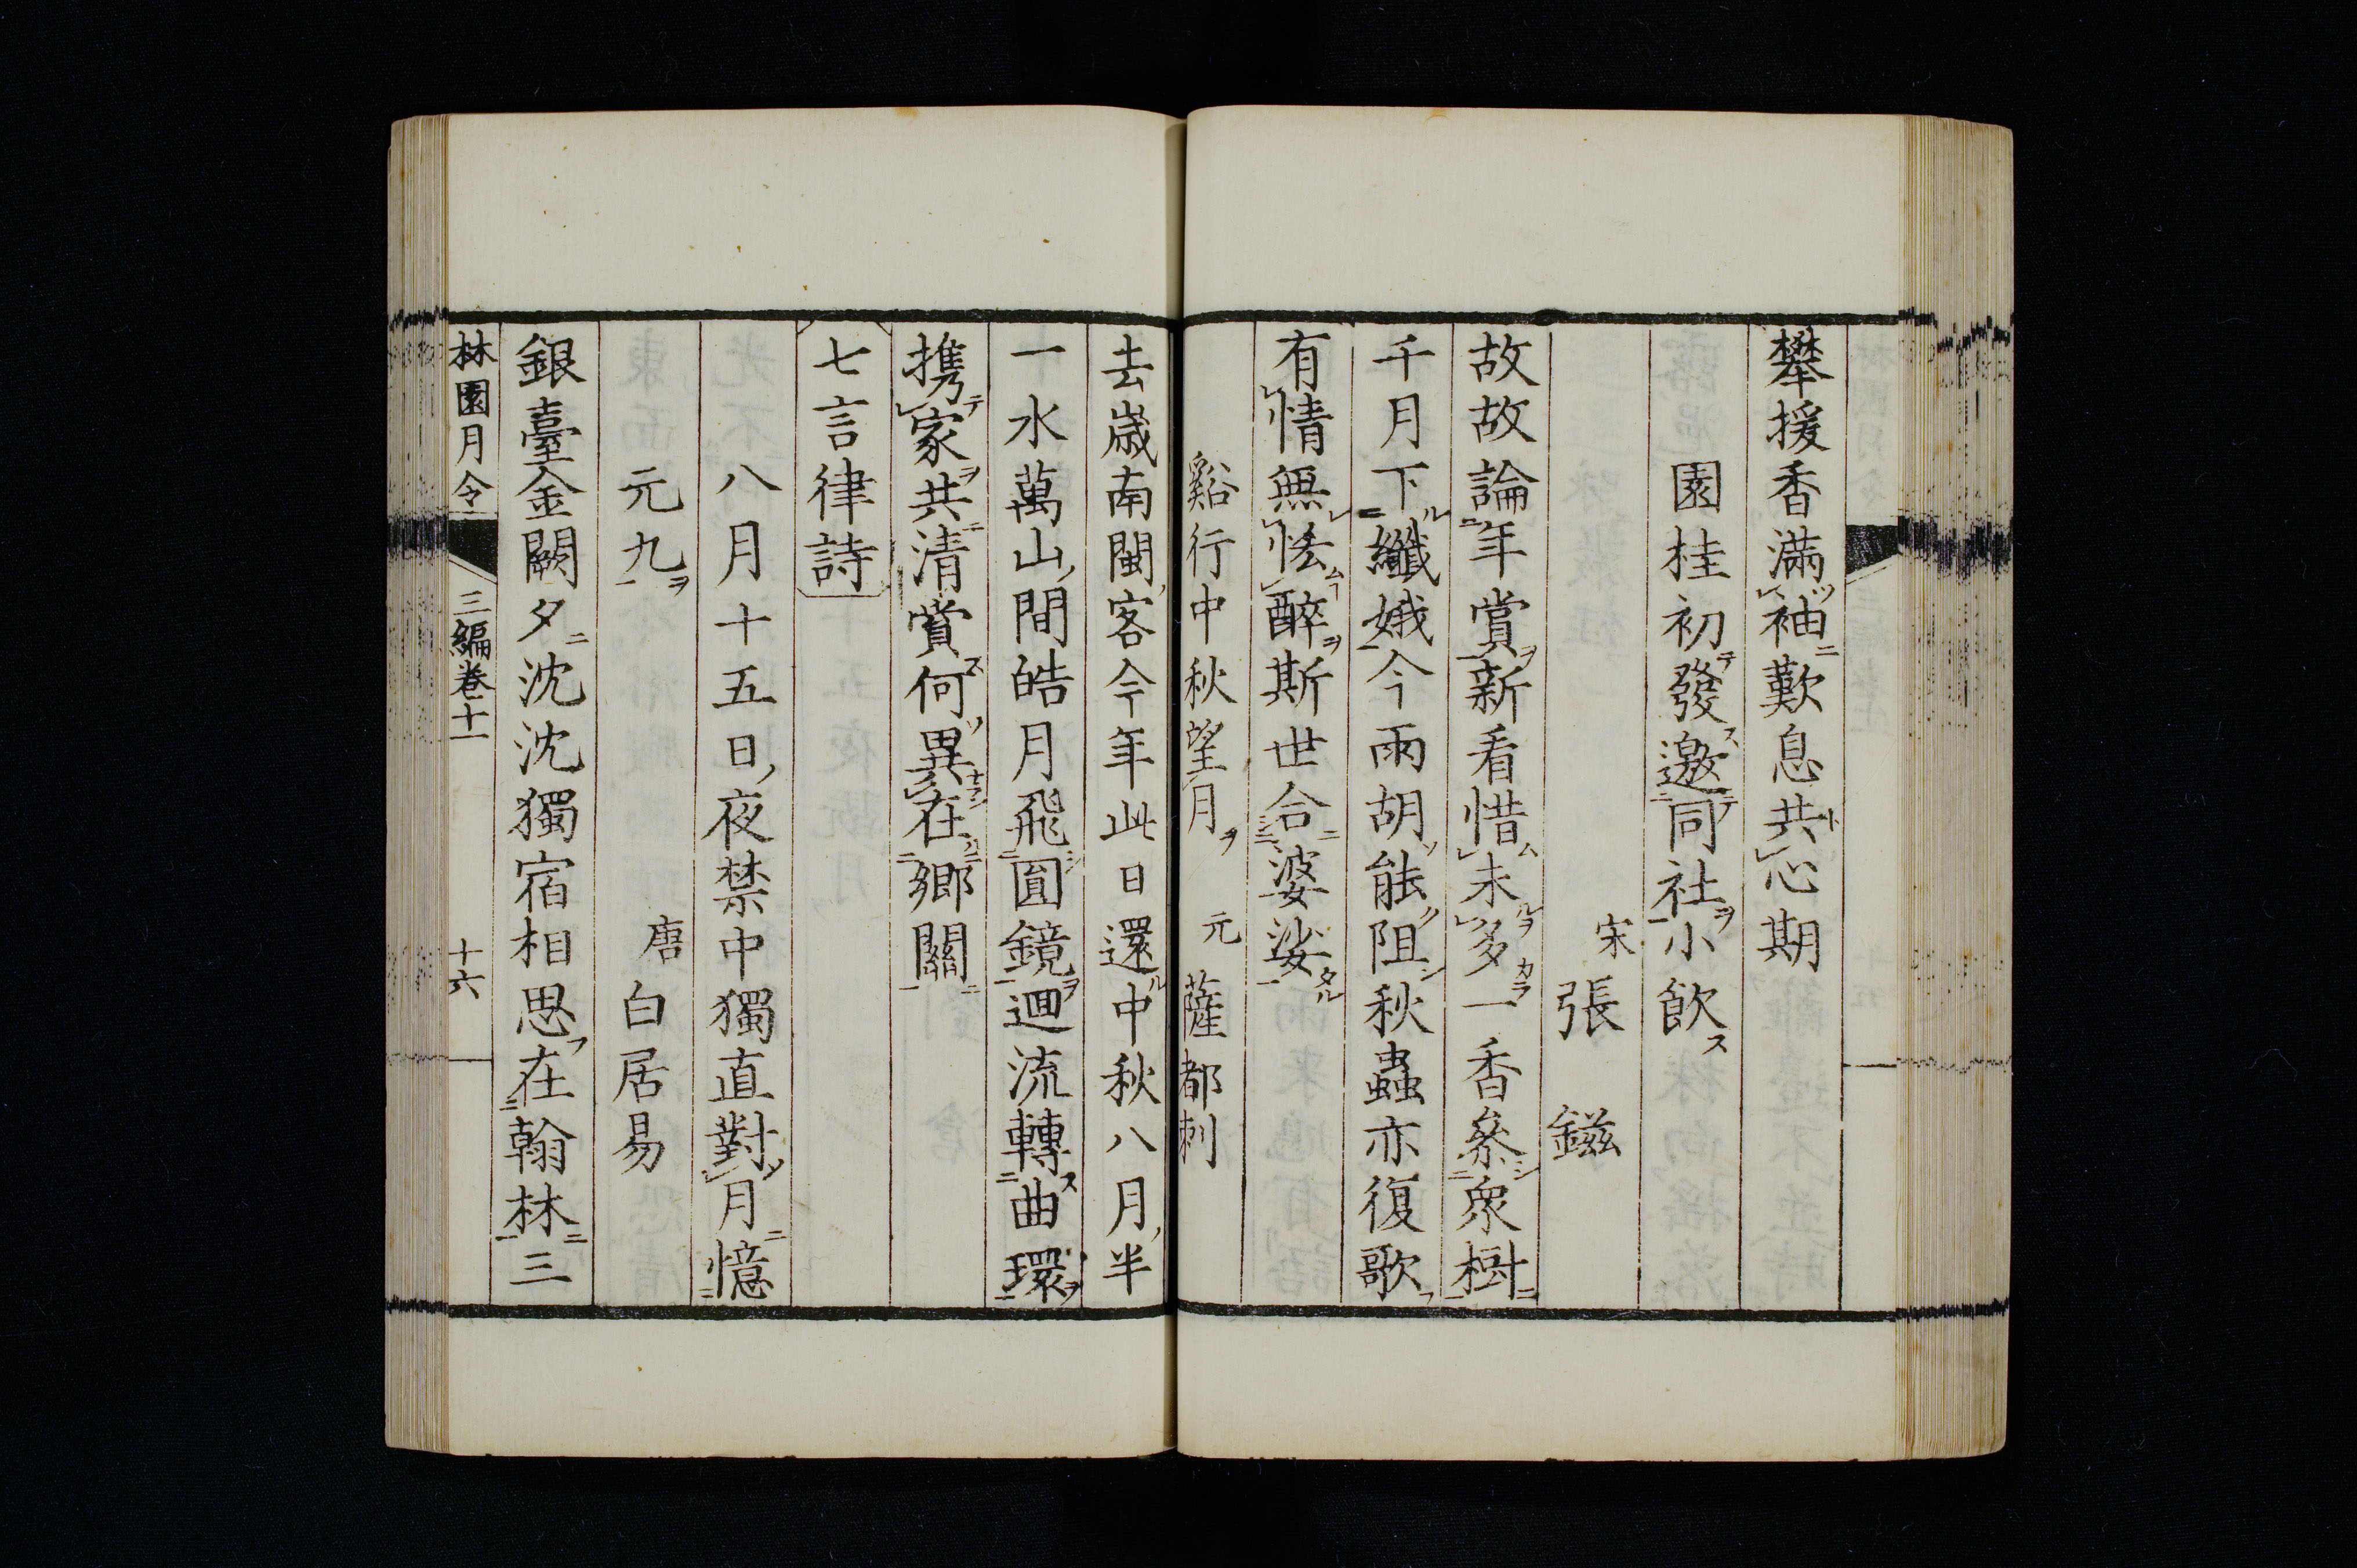 攀援香満袖歎息共心期
園桂初發邀同社小飲
宋 張 鎡
故故論年賞新看惜未多一香叅衆樹
千月下孅娥今雨胡能阻秋蟲亦復歌
有情無恡醉斯世合婆娑
谿行中秋望月 元 薩都刺
去歳南閩客今年此日還中秋八月半
一水萬山間皓月飛圓鏡迴流轉曲環
携家共清賞何異在鄉關
七言律詩
八月十五日夜禁中獨直對月憶
元九 唐 白居易
銀臺金闕夕沈沈獨宿相思在翰林三
林園月令 三編卷十一 十六